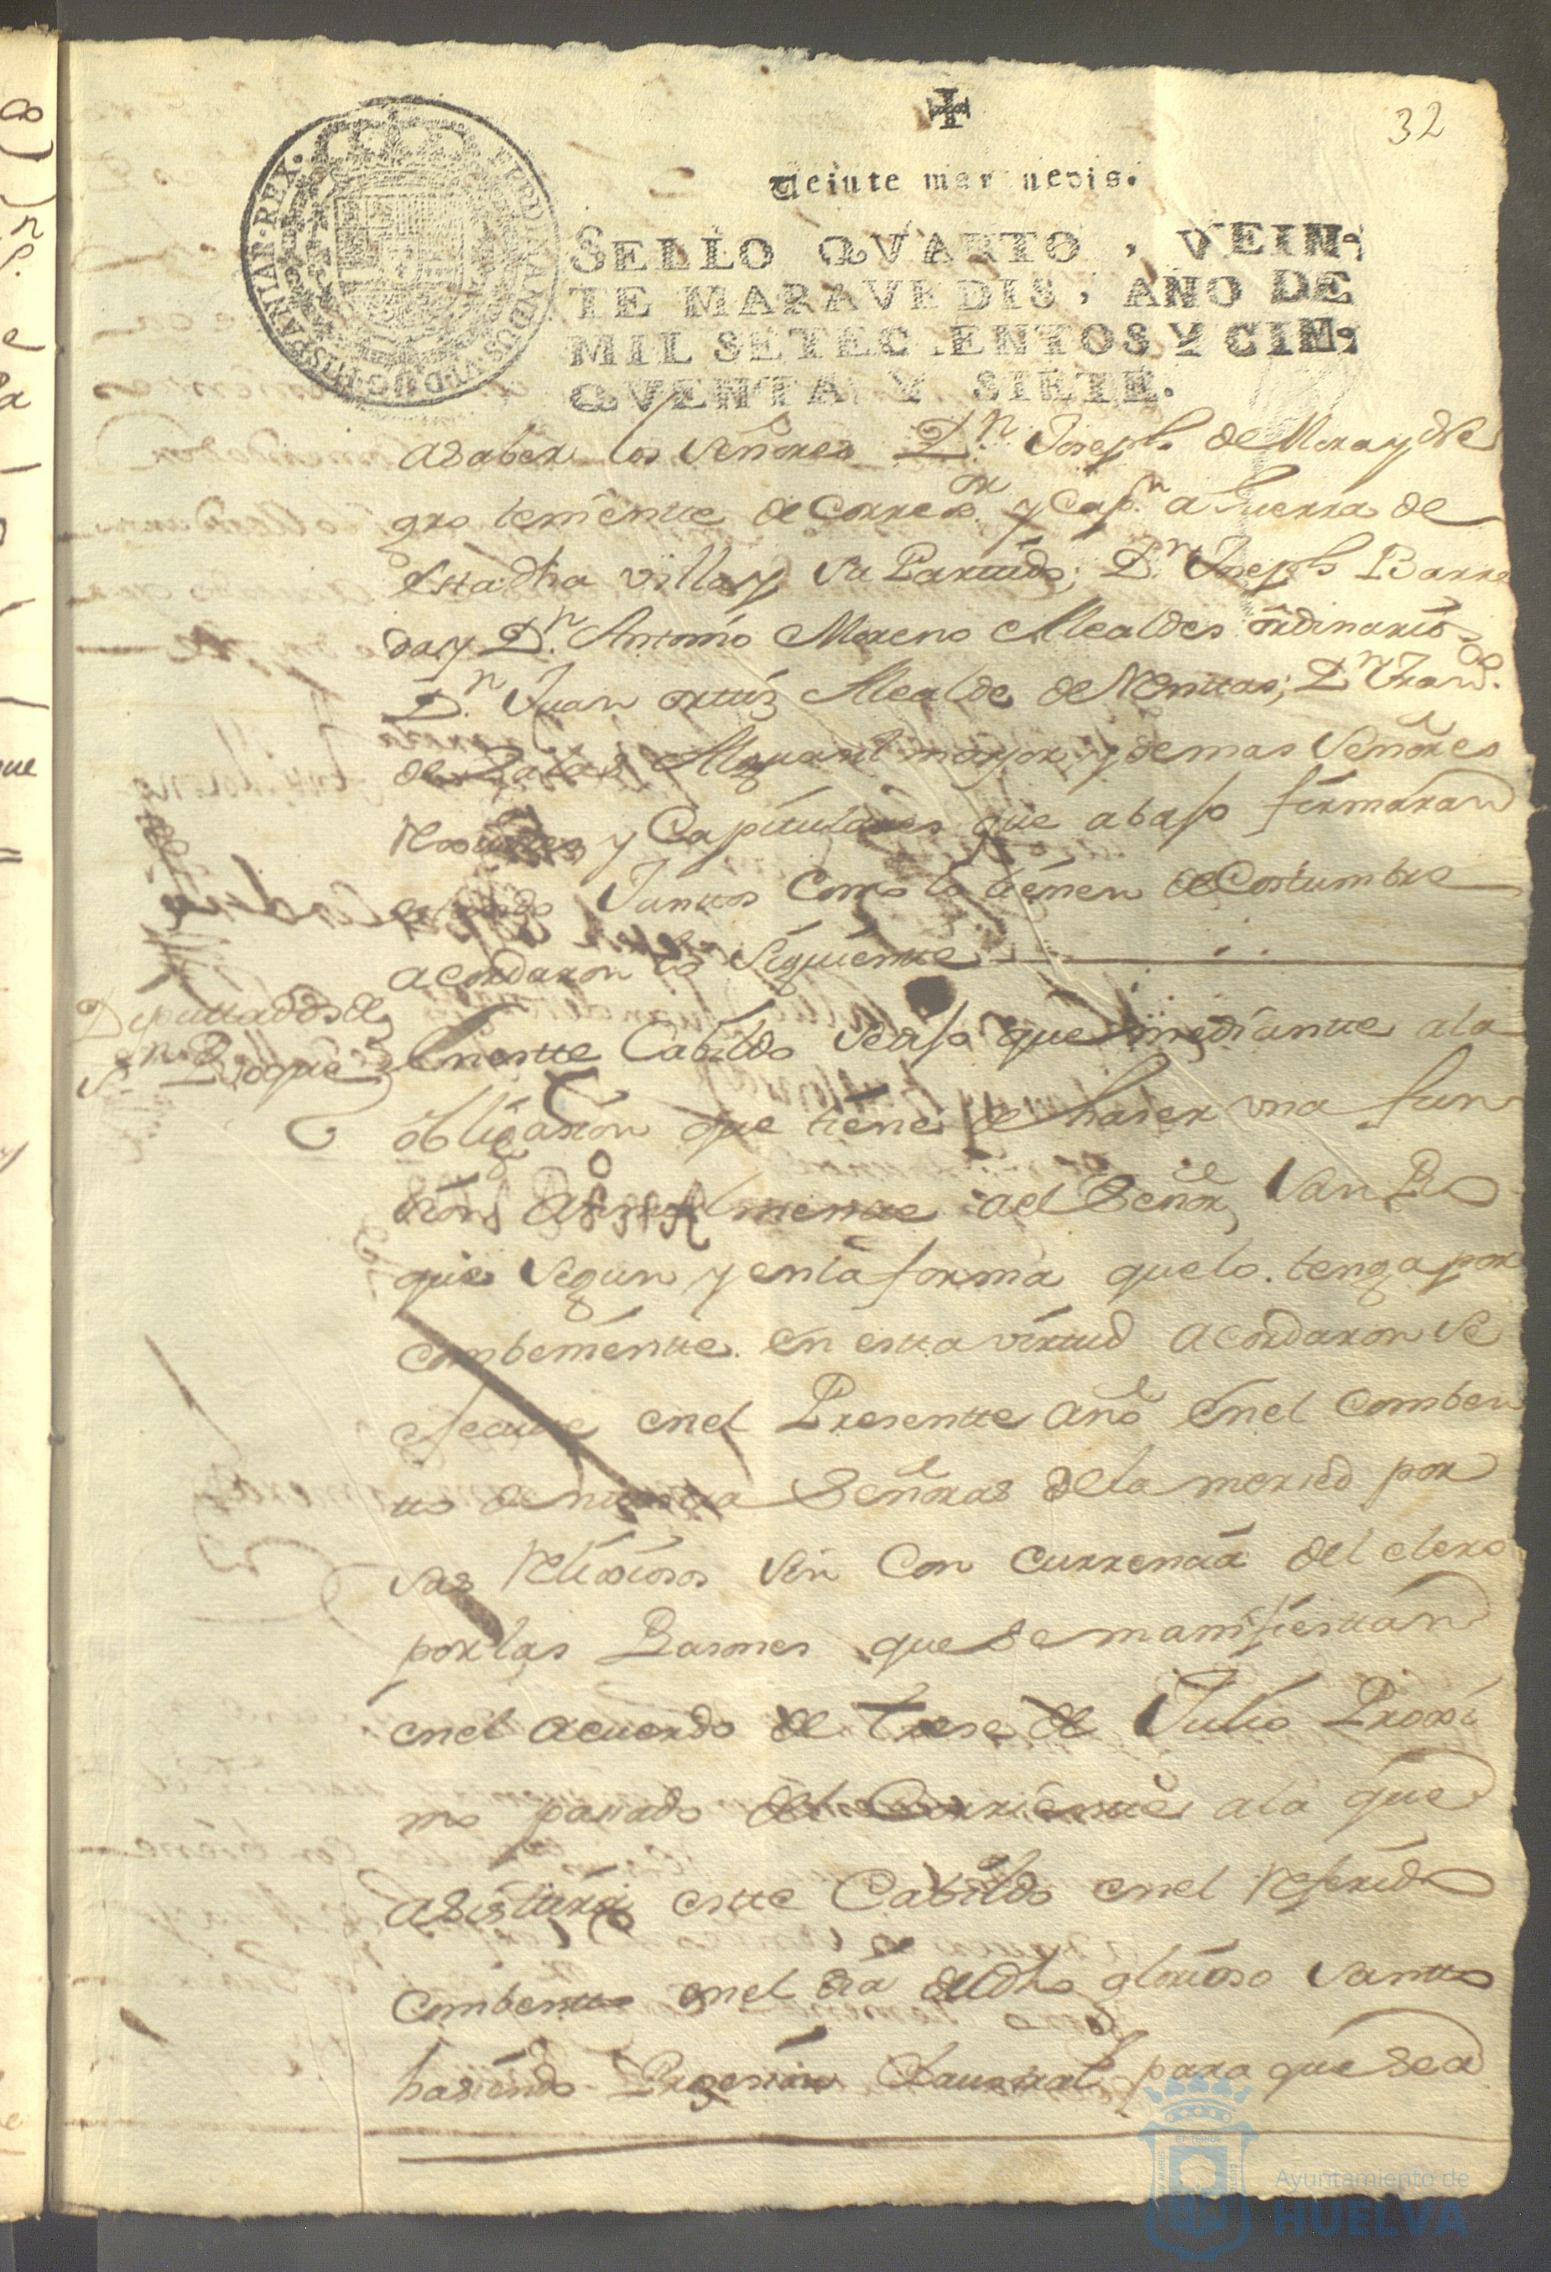 32
Veinte marauedis.
SELLO QVARTO, VEIN-
TE MARAVEDIS, AÑO DE
MIL SETECIENTOS Y CIN-
QVENTA Y SIETE.
FERDINANDUS·VI·D·G·HISPANIAR·REX·
a saber los Señores Dn. Joseph de Mora y Ne
gro teniente de Correor. y Capn. a Guerra de
esta dha villa y su Partido; Dn. Joseph Barre
da y Dn. Antonio Moreno Alcaldes ordinarios
Dn. Juan ortiz Alcalde de Nentas; Dn. Franco.
de Alguasil mayor y demas Señores
y Capitulares que abajo firmaran
estando Juntos Como lo tienen de Costumbre
acordaron lo siguiente
Diputtados de
Sn. Roque
En estte Cabildo se dijo que mediantte a la
obligasion que tiene de haser una fun
sion Anualmentte al Señor San Ro
que segun y en la forma que lo tenga por
combenientte en estta virtud acordaron se
ejecutte en el Presentte año en el Comben
tto de nuestra Señora de la merced por
sus Relixiosos sin Con currencia del clero
por las Rasones que se manifiesttan
en el acuerdo de trese de Julio Proxi
mo passado del Corrientte a la que
asisttirá estte Cabildo en el referido
combentto en el dia del dho glorioso santto
hasiendo Prosesion Claustral para que sea
Ayuntamiento de
HUELVA